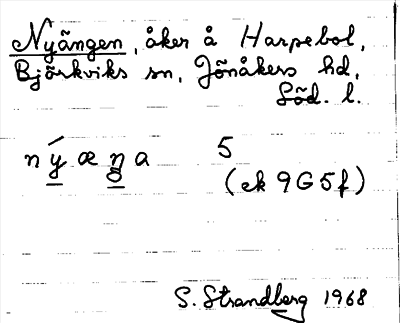 Nyängen, åker å Harpebol,
Björkviks sn, Jönåkers hd,
Söd. l.
nýæŋa 5
(ek 9G5f)
S. Strandberg 1968